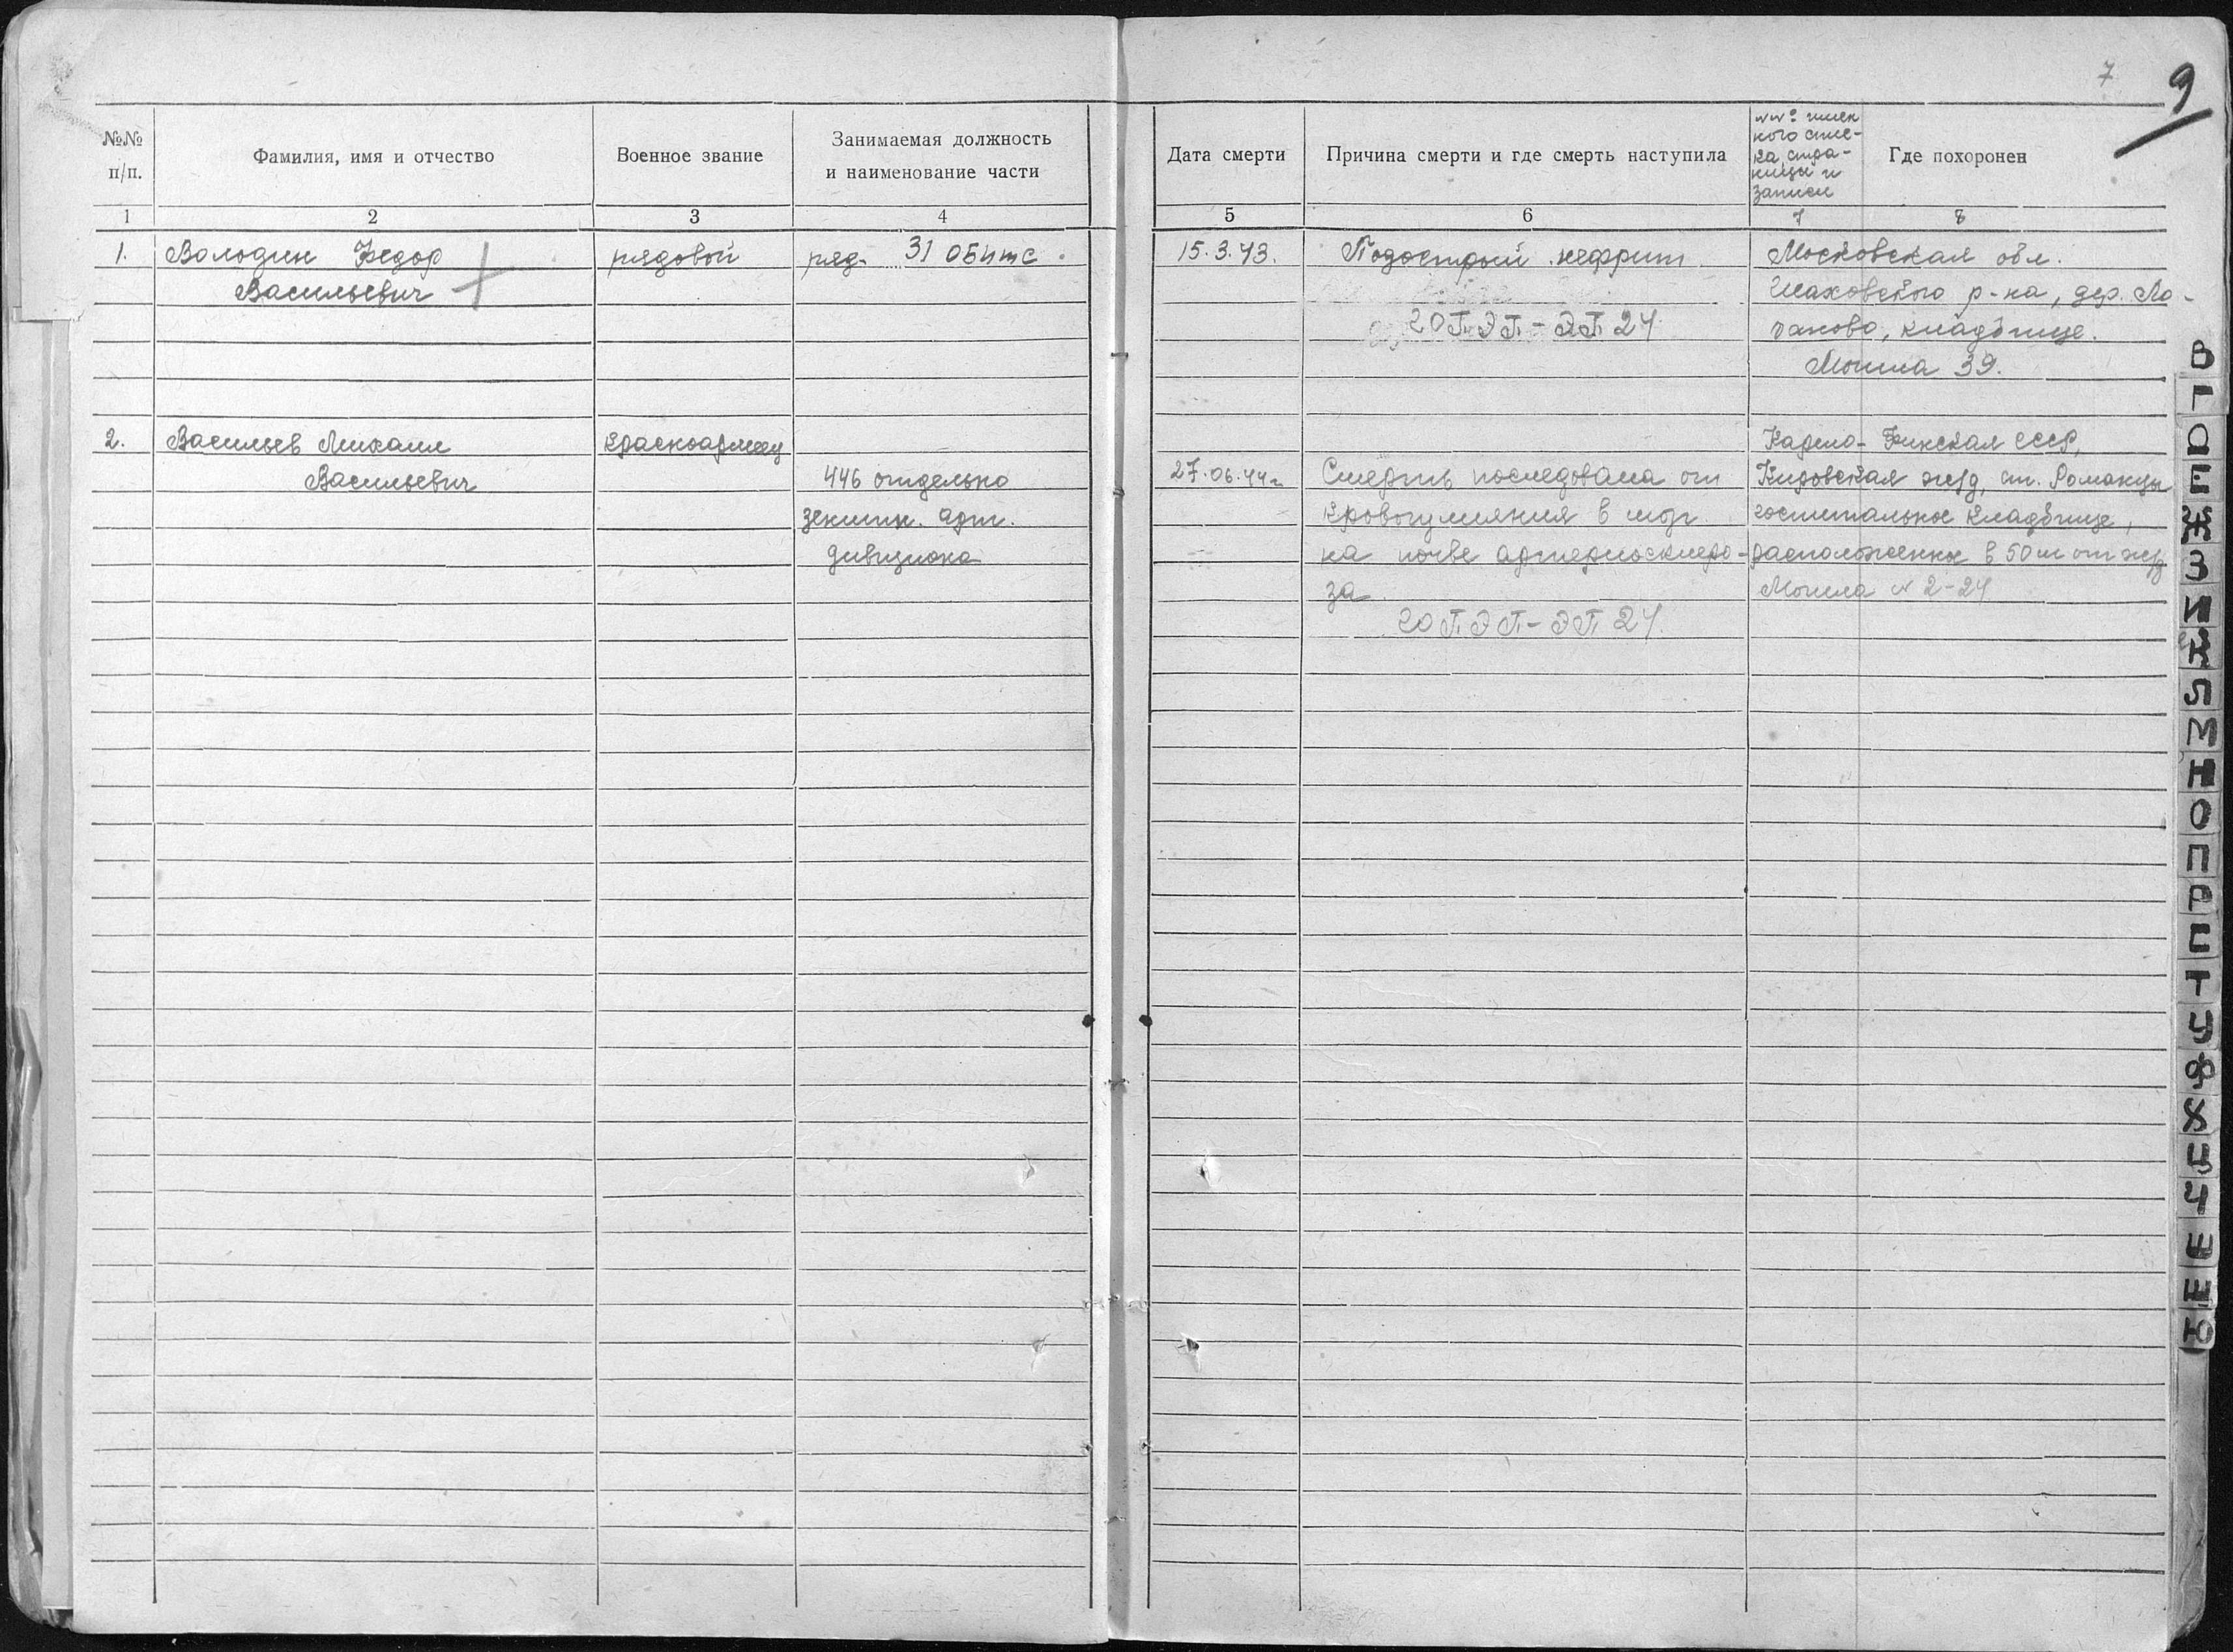 7
9
№№ п/п.
Фамилия, имя и отчество
Военное звание
Занимаемая должность
и наименование части
Дата смерти
Причина смерти и где смерть наступила
ка, стра-
ницы и
записи
Где похоронен
1 2 3 4 5 6 7 8
1. Володин Федор рядовой ряд. 31 15.3.43. Подострый нефрит Московская обл.
Васильевич Шаховского р-на, дер. Ло-
20 ПЭП-ЭП 24 кладбище.
Могила 39.
2. Васильев Михаил красноармеец Карело-Финская СССР,
Васильевич 446 отдельно 27.06.44г Смерть последовала от Кировская жд, ст. Романцы
зенитн. арт. кровоизлияния в мозг госпитальное кладбище,
дивизиона на почве артериосклеро- расположенное в 50 м от жд
за Могила № 2-24
20 ПЭП-ЭП 24.
В
Г
Д
Е
Ж
З
И
К
Л
М
Н
О
П
Р
С
Т
У
Ф
Х
Ц
Ч
Ю